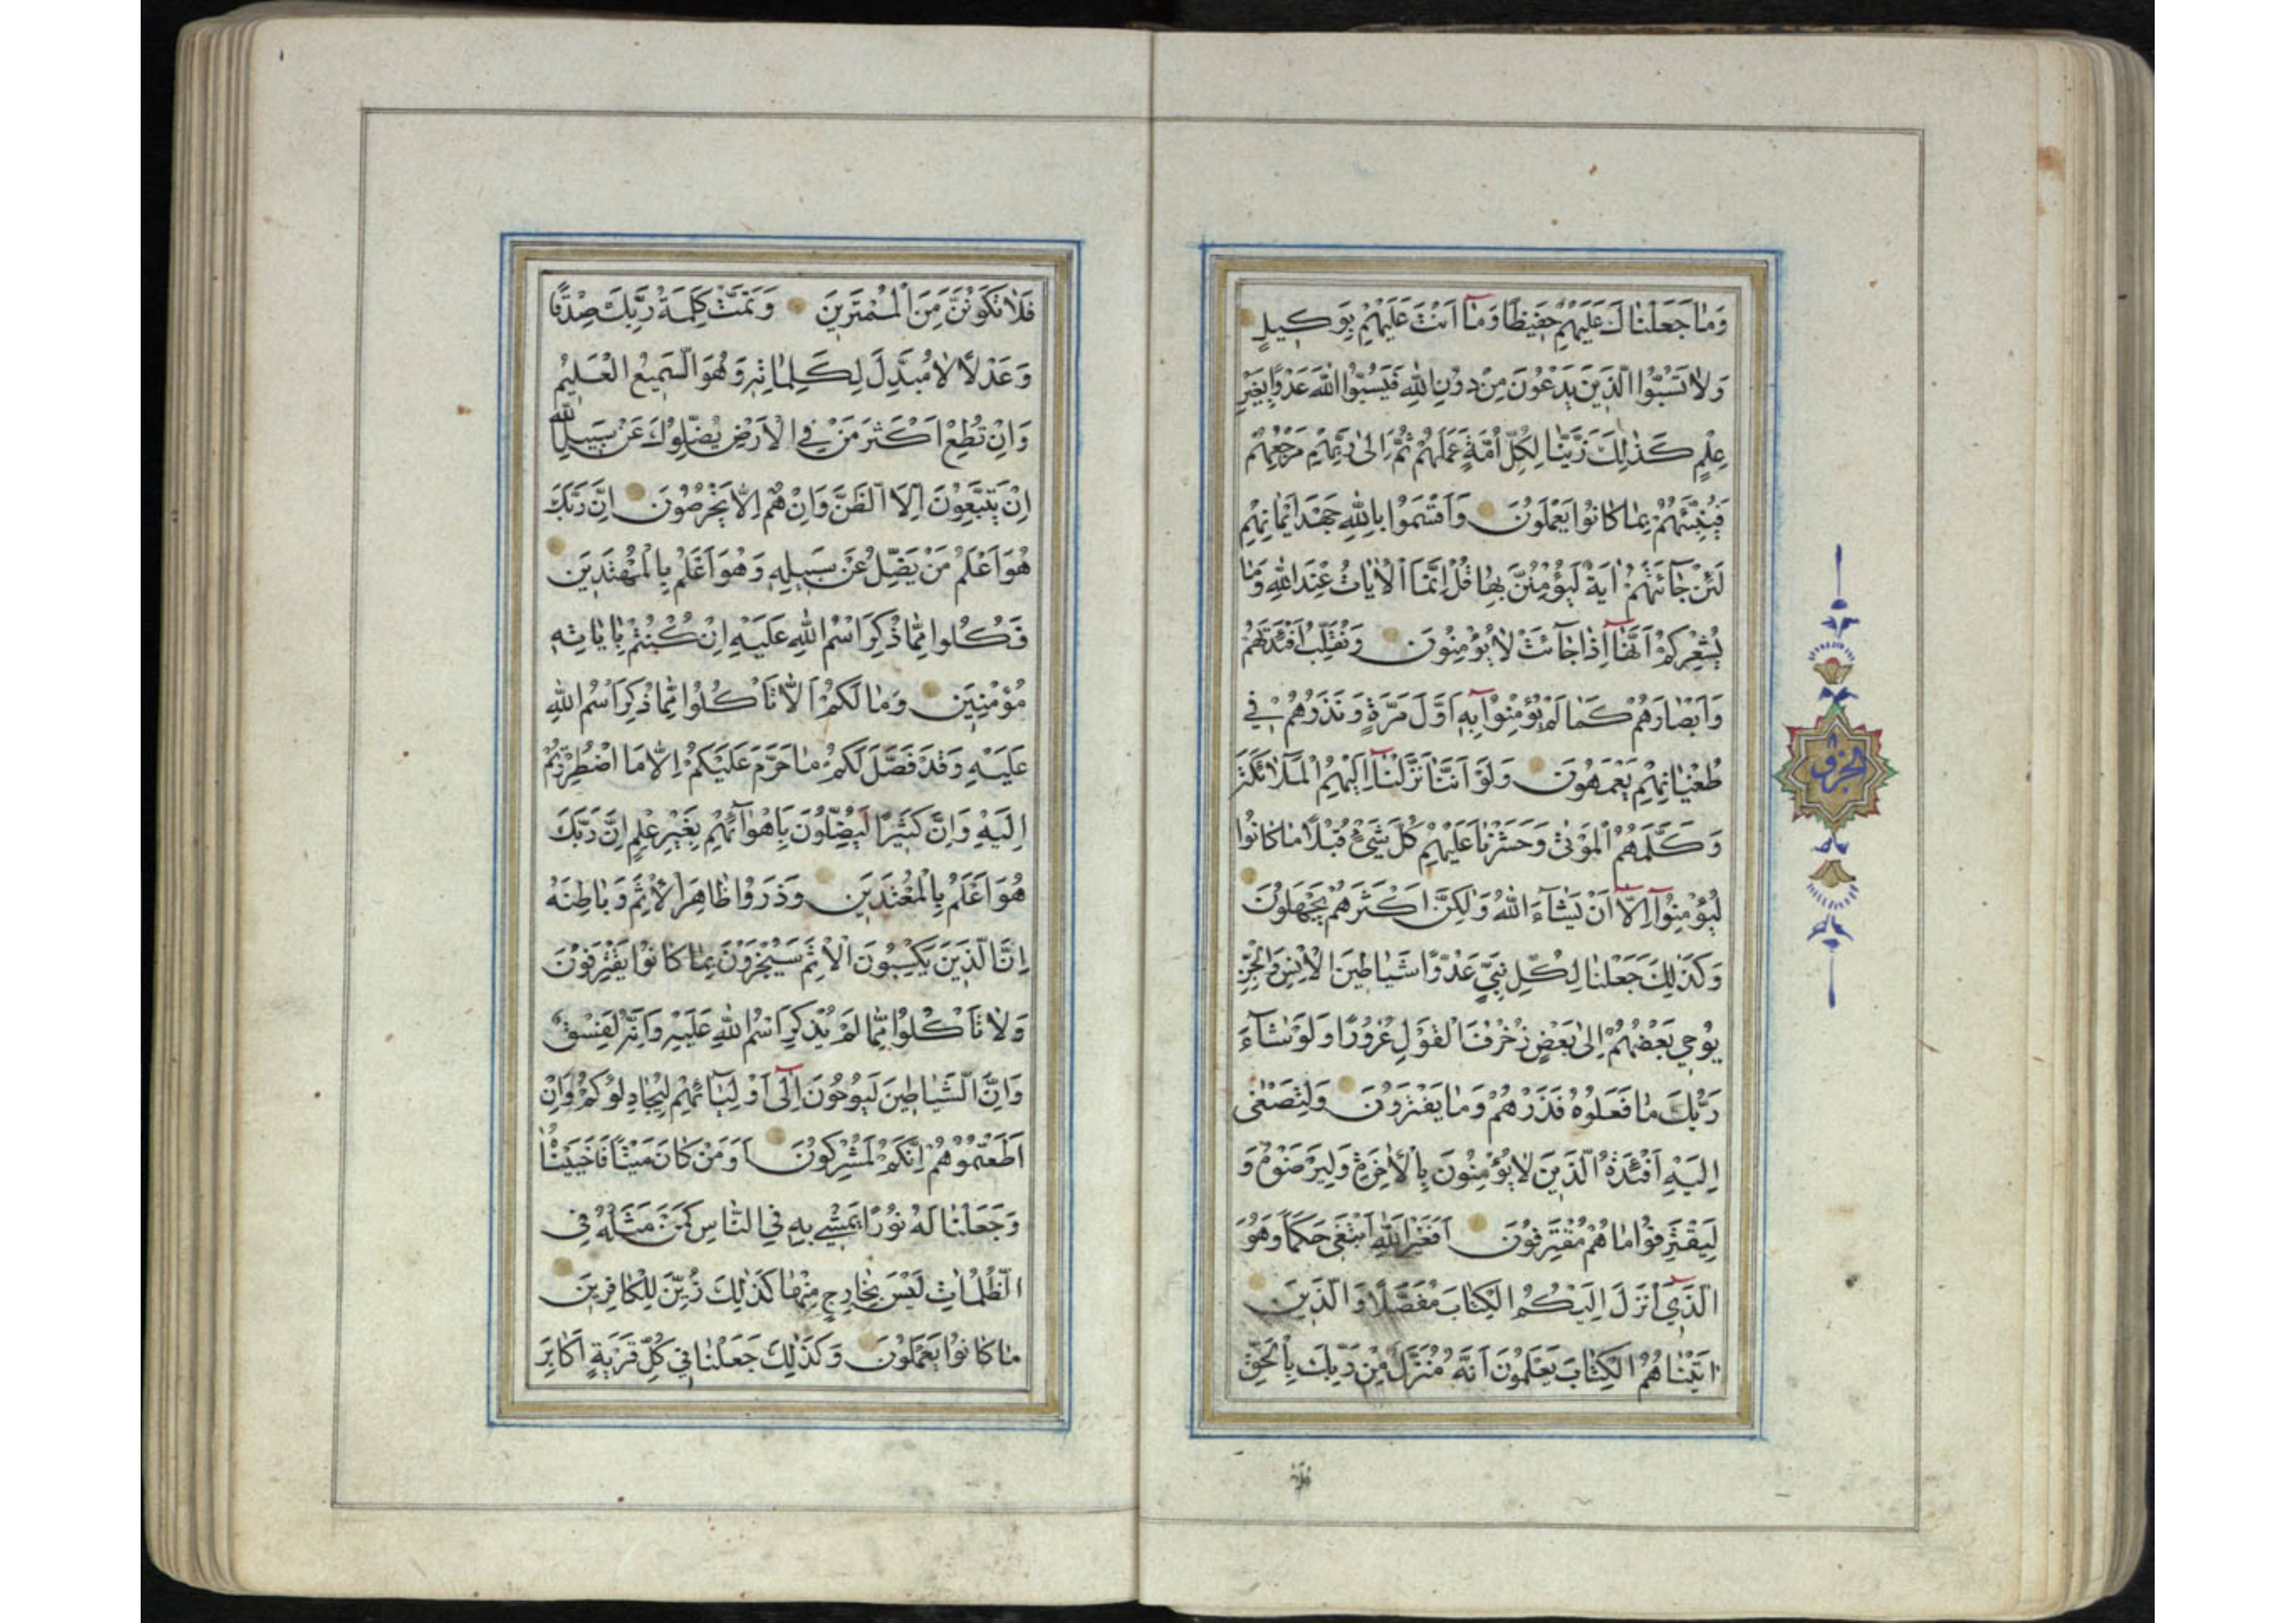 وَمَا جَعَلْنَاكَ عَلَيْهِمْ حَفِيظًا وَمَآ اَنْتَ عَلَيْهِمْ بِوَكِيلٍ
وَلَا تَسُبُّوا الَّذِينَ يَدْعُونَ مِنْ دُونِ اللهِ فَيَسُبُّوا اللهَ عَدْوًا بِغَيْرِ
عِلْمٍ كَذٰلِكَ زَيَّنَّا لِكُلِّ اُمَّةٍ عَمَلَهُمْ ثُمَّ اِلٰى رَبِّهِمْ مَرْجِعُهُمْ
فَيُنَبِّئُهُمْ بِمَا كَانُوا يَعْمَلُونَ وَاَقْسَمُوا بِاللهِ جَهْدَ اَيْمَانِهِمْ
لَئِنْ جَآئَتْهُمْ اٰيَةٌ لَيُؤْمِنُنَّ بِهَا قُلْ اِنَّمَا الْاٰيَاتُ عِنْدَ اللهِ وَمَا
يُشْعِرُكُمْ اَنَّهَآ اِذَا جَآئَتْ لَا يُؤْمِنُونَ وَنُقَلِّبُ اَفْئِدَتَهُمْ
وَاَبْصَارَهُمْ كَمَا لَمْ يُؤْمِنُوا بِهِٓ اَوَّلَ مَرَّةٍ وَنَذَرُهُمْ فِي
طُغْيَانِهِمْ يَعْمَهُونَ وَلَوْ اَنَّنَا نَزَّلْنَآ اِلَيْهِمُ الْمَلَآئِكَةَ
وَكَلَّمَهُمُ الْمَوْتٰى وَحَشَرْنَا عَلَيْهِمْ كُلَّ شَيْءٍ قُبُلًا مَا كَانُوا
لِيُؤْمِنُوٓا اِلَّآ اَنْ يَشَآءَ اللهُ وَلٰكِنَّ اَكْثَرَهُمْ يَجْهَلُونَ
وَكَذٰلِكَ جَعَلْنَا لِكُلِّ نَبِيٍّ عَدُوًّا شَيَاطِينَ الْاِنْسِ وَالْجِنِّ
يُوحِي بَعْضُهُمْ اِلٰى بَعْضٍ زُخْرُفَ الْقَوْلِ غُرُورًا وَلَوْ شَآءَ
رَبُّكَ مَا فَعَلُوهُ فَذَرْهُمْ وَمَا يَفْتَرُونَ وَلِتَصْغٰى
اِلَيْهِ اَفْئِدَةُ الَّذِينَ لَا يُؤْمِنُونَ بِالْاٰخِرَةِ وَلِيَرْضَوْهُ وَ
لِيَقْتَرِفُوا مَا هُمْ مُقْتَرِفُونَ اَفَغَيْرَ اللهِ اَبْتَغِي حَكَمًا وَهُوَ
الَّذِي اَنْزَلَ اِلَيْكُمُ الْكِتَابَ مُفَصَّلًا وَالَّذِينَ
اٰتَيْنَاهُمُ الْكِتَابَ يَعْلَمُونَ اَنَّهُ مُنَزَّلٌ مِنْ رَبِّكَ بِالْحَقِّ
الحزب
فَلَا تَكُونَنَّ مِنَ الْمُمْتَرِينَ وَتَمَّتْ كَلِمَةُ رَبِّكَ صِدْقًا
وَعَدْلًا لَا مُبَدِّلَ لِكَلِمَاتِهِ وَهُوَ السَّمِيعُ الْعَلِيمُ
وَاِنْ تُطِعْ اَكْثَرَ مَنْ فِي الْاَرْضِ يُضِلُّوكَ عَنْ سَبِيلِ اللهِ
اِنْ يَتَّبِعُونَ اِلَّا الظَّنَّ وَاِنْ هُمْ اِلَّا يَخْرُصُونَ اِنَّ رَبَّكَ
هُوَ اَعْلَمُ مَنْ يَضِلُّ عَنْ سَبِيلِهِ وَهُوَ اَعْلَمُ بِالْمُهْتَدِينَ
فَكُلُوا مِمَّا ذُكِرَ اسْمُ اللهِ عَلَيْهِ اِنْ كُنْتُمْ بِاٰيَاتِهِ
مُؤْمِنِينَ وَمَا لَكُمْ اَلَّا تَأْكُلُوا مِمَّا ذُكِرَ اسْمُ اللهِ
عَلَيْهِ وَقَدْ فَصَّلَ لَكُمْ مَا حَرَّمَ عَلَيْكُمْ اِلَّا مَا اضْطُرِرْتُمْ
اِلَيْهِ وَاِنَّ كَثِيرًا لَيُضِلُّونَ بِاَهْوَآئِهِمْ بِغَيْرِ عِلْمٍ اِنَّ رَبَّكَ
هُوَ اَعْلَمُ بِالْمُعْتَدِينَ وَذَرُوا ظَاهِرَ الْاِثْمِ وَبَاطِنَهُ
اِنَّ الَّذِينَ يَكْسِبُونَ الْاِثْمَ سَيُجْزَوْنَ بِمَا كَانُوا يَقْتَرِفُونَ
وَلَا تَأْكُلُوا مِمَّا لَمْ يُذْكَرِ اسْمُ اللهِ عَلَيْهِ وَاِنَّهُ لَفِسْقٌ
وَاِنَّ الشَّيَاطِينَ لَيُوحُونَ اِلٰٓى اَوْلِيَآئِهِمْ لِيُجَادِلُوكُمْ وَاِنْ
اَطَعْتُمُوهُمْ اِنَّكُمْ لَمُشْرِكُونَ اَوَمَنْ كَانَ مَيْتًا فَاَحْيَيْنَاهُ
وَجَعَلْنَا لَهُ نُورًا يَمْشِي بِهِ فِي النَّاسِ كَمَنْ مَثَلُهُ فِي
الظُّلُمَاتِ لَيْسَ بِخَارِجٍ مِنْهَا كَذٰلِكَ زُيِّنَ لِلْكَافِرِينَ
مَا كَانُوا يَعْمَلُونَ وَكَذٰلِكَ جَعَلْنَا فِي كُلِّ قَرْيَةٍ اَكَابِرَ